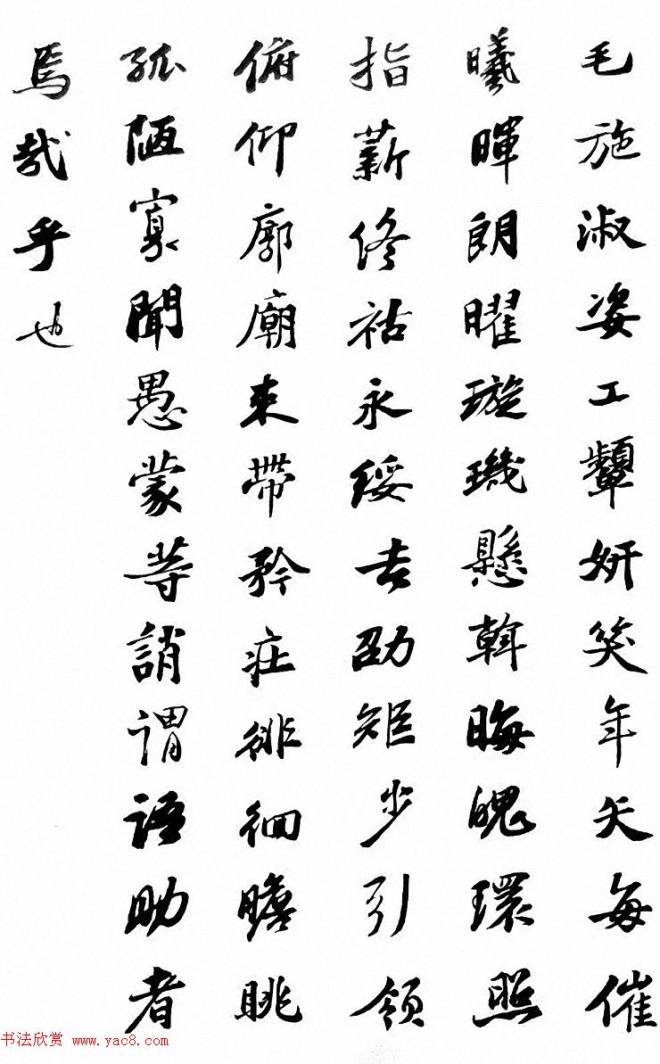 毛施淑姿工顰妍笑年矢每催
曦暉朗曜璇璣懸斡晦魄環照
指薪修祜永綏吉劭矩步引領
俯仰廊廟束帶矜莊徘徊瞻眺
孤陋寡聞愚蒙等誚謂語助者
焉哉乎也
书法欣赏 www.yac8.com